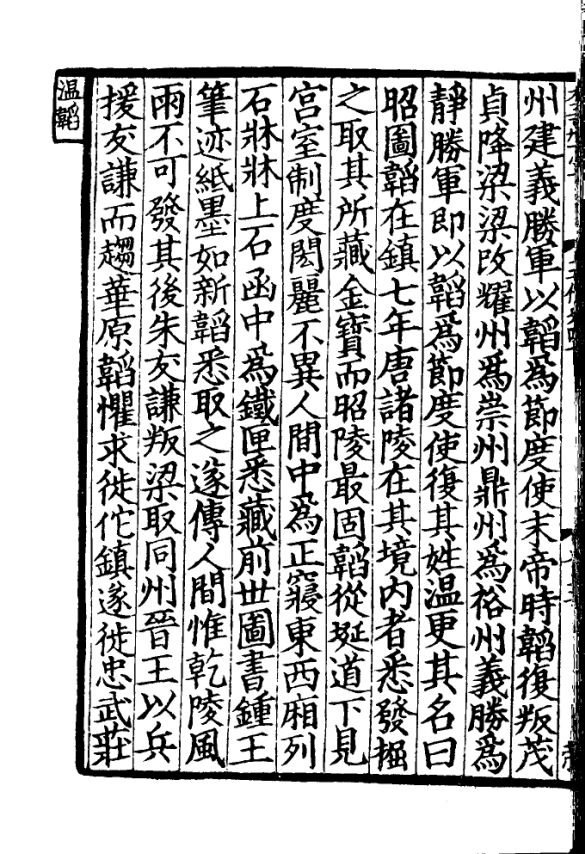 州建義勝軍以韜爲節度使末帝時韜復叛茂
貞降梁梁改耀州爲崇州鼎州爲裕州義勝爲
靜勝軍即以韜爲節度使復其姓温更其名曰
昭圖韜在鎮七年唐諸陵在其境內者悉發掘
之取其所藏金寶而昭陵最固韜從埏道下見
宮室制度閎麗不異人間中爲正寢東西廂列
石牀牀上石函中爲鐵匣悉藏前世圖書鍾王
筆迹紙墨如新韜悉取之遂傳人間惟乾陵風
雨不可發其後朱友謙叛梁取同州晉王以兵
援友謙而趨華原韜懼求徙佗鎮遂徙忠武莊
温韜